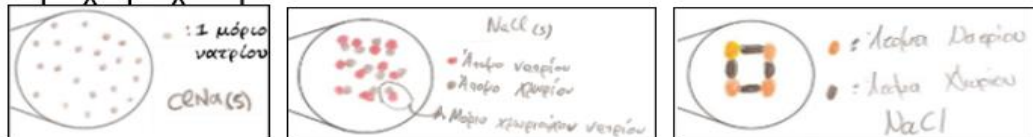 : 1 μόριο
νατρίου
ClNa(s)
NaCl(s)
Άτομο νατρίου
Άτομο Χλωρίου
Μόριο χλωριούχου νατρίου
: Άτομα Νατρίου
: Άτομα Χλωρίου
NaCl